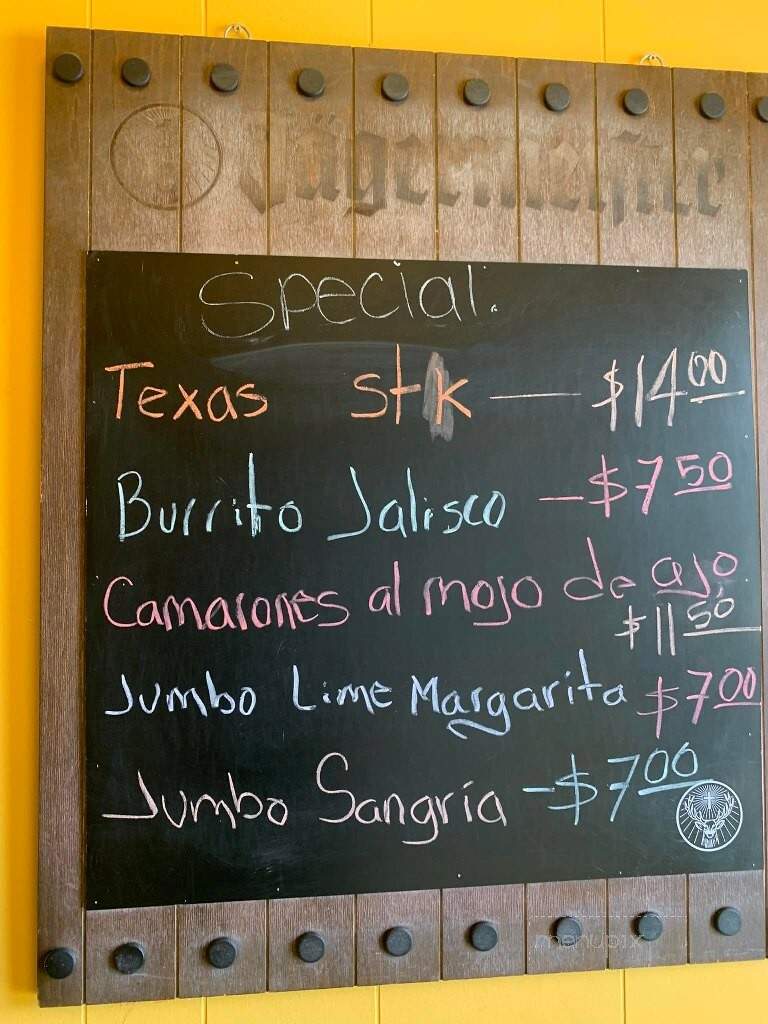 Jägermeister
Special.
Texas stk — $14.00
Burrito Jalisco — $7.50
Camarones al mojo de ajo
$11.50
Jumbo Lime Margarita $7.00
Jumbo Sangría - $7.00
menupix